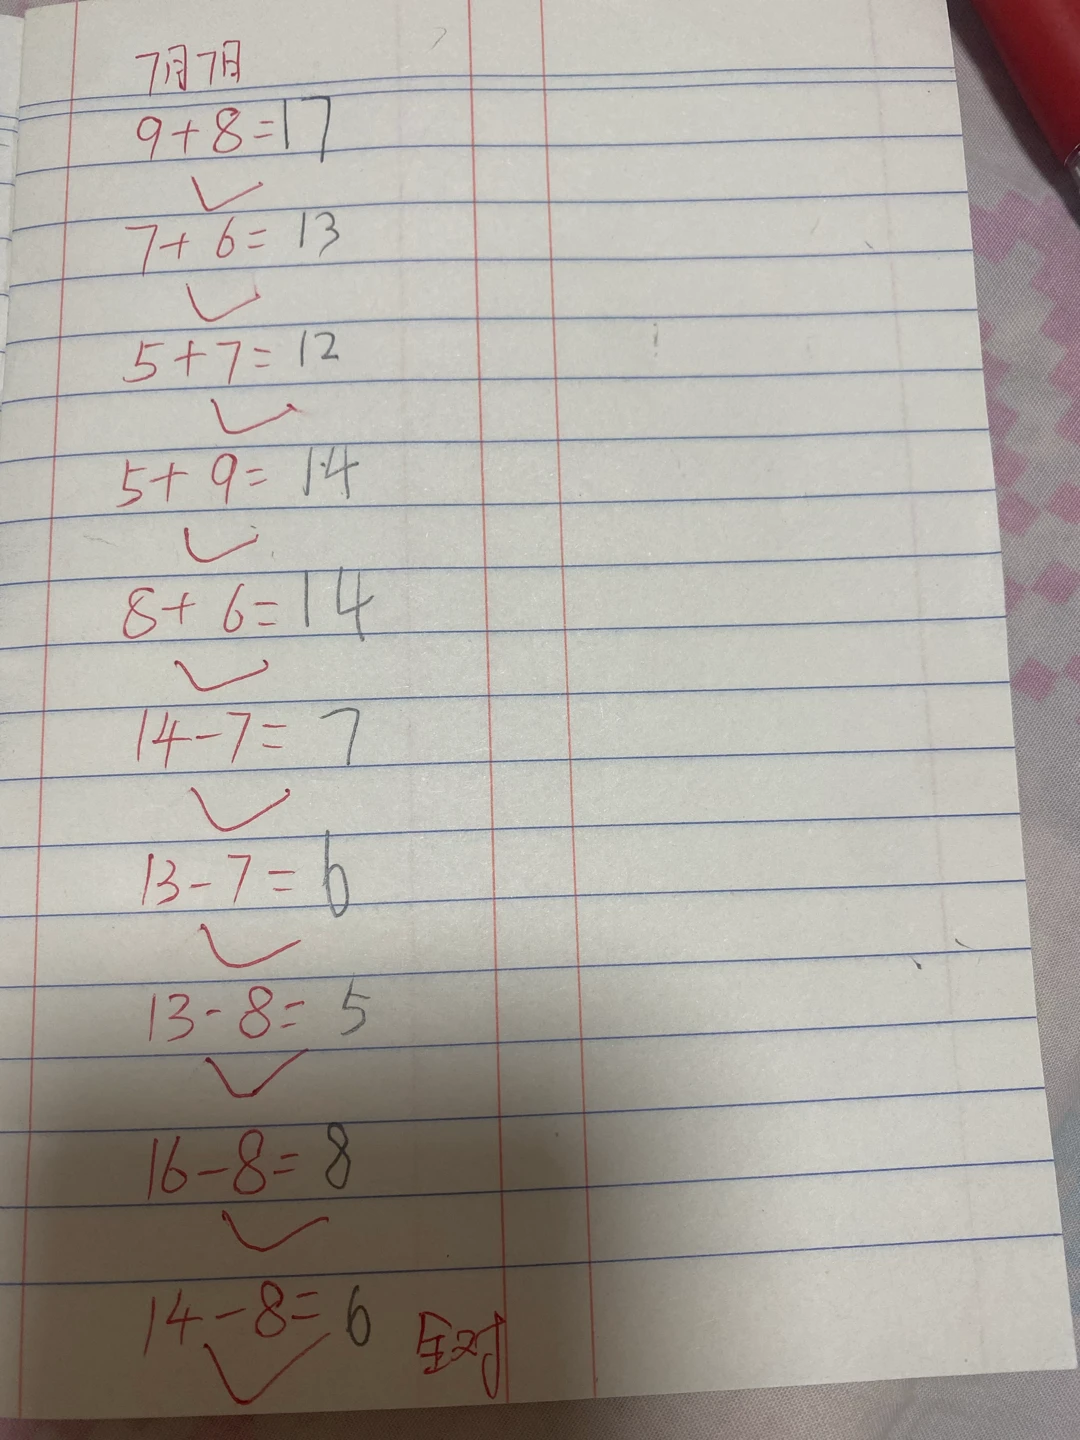 7月7日
9+8=17
7+6=13
5+7=12
5+9=14
8+6=14
14-7=7
13-7=6
13-8=5
16-8=8
14-8=6
全对